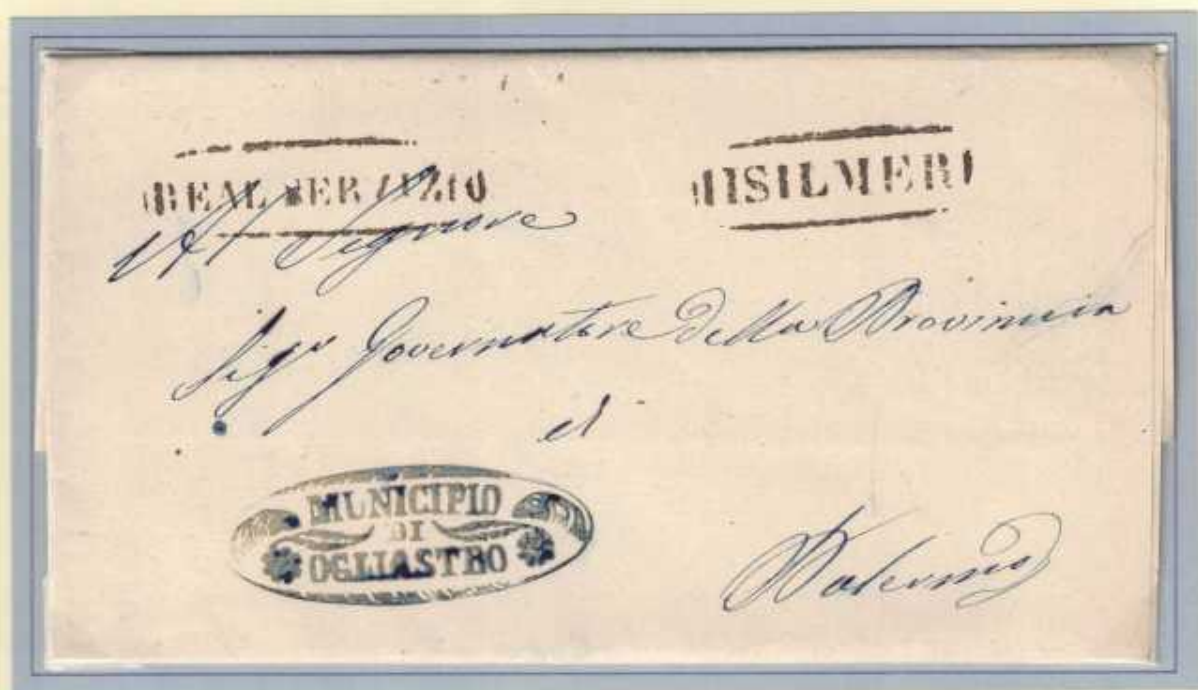 REAL SERVIZIO
MISILMERI
Al Signore
Sigr Governatore della Provincia
di
MUNICIPIO
DI
OGLIASTRO
Palermo